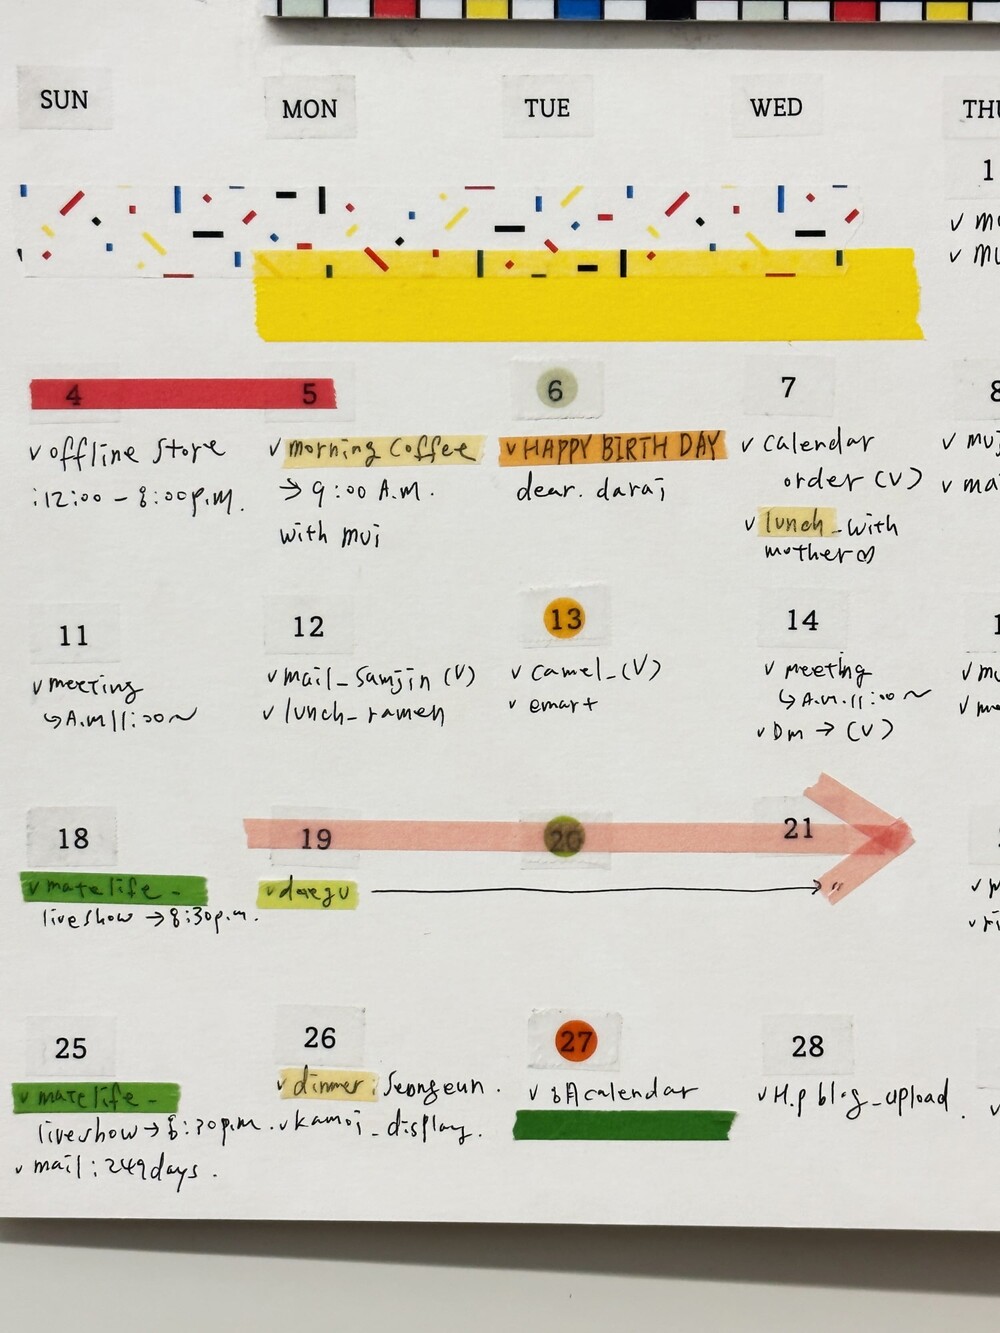 SUN
MON
TUE
WED
THU
1
4
5
6
7
8
v offline store
:12:00 - 8:00p.m.
v morning coffee
→ 9:00 A.M.
with muj
v HAPPY BIRTH DAY
dear. daraj
v calendar
order (v)
v lunch_with
mother♡
11
12
13
14
v meeting
↳ A.M 11:00~
v mail_samjin (v)
v lunch_ramen
v camel_(v)
v emart
v meeting
↳ A.M. 11:00~
v Dm → (v)
18
19
20
21
v matelife -
liveshow → 8:30p.m.
v daegu
"
25
26
27
28
v matelife -
liveshow → 8:30p.m.
v mail: 249days.
v dinner: Seongeun.
v kamoj_display.
v 8月calendar
v H.p blog_upload.